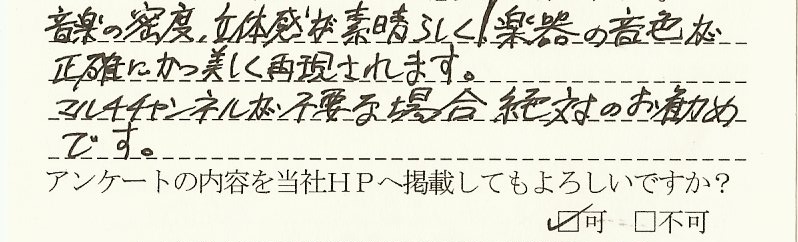 音楽の密度、立体感が素晴らしく!楽器の音色が
正確にかつ美しく再現されます。
マルチチャンネルが不要な場合絶対のお勧め
です。
アンケートの内容を当社HPへ掲載してもよろしいですか?
☑可 □不可